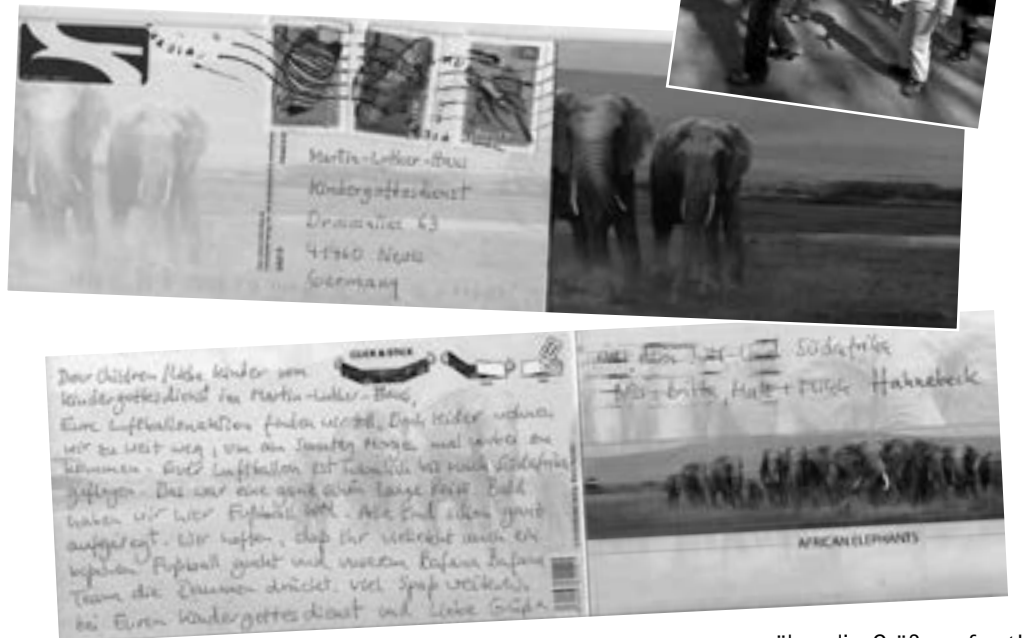 Martin-Luther-Haus
Kindergottesdienst
63
41460 Neuss
Germany
Dear Children / Liebe Kinder vom
Kindergottesdienst im Martin-Luther-Haus,
Eure Luftballonaktion finden wir toll. Doch leider wohnen
wir zu weit weg, um am Sonntag Morgen mal vorbei zu
kommen. Euer Luftballon ist nämlich bis nach Südafrika
geflogen. Das war eine ganz schön lange Reise. Bald
haben wir hier Fußball WM. Alle sind schon ganz
aufgeregt. Wir hoffen, daß Ihr vielleicht auch ein
bißchen Fußball guckt und unserem Bafana Bafana
Team die Daumen drückt. Viel Spaß weiterhin
bei Eurem Kindergottesdienst und Liebe Grüße
CLICK & STICK
Südafrika
Hahnebeck
AFRICAN ELEPHANTS